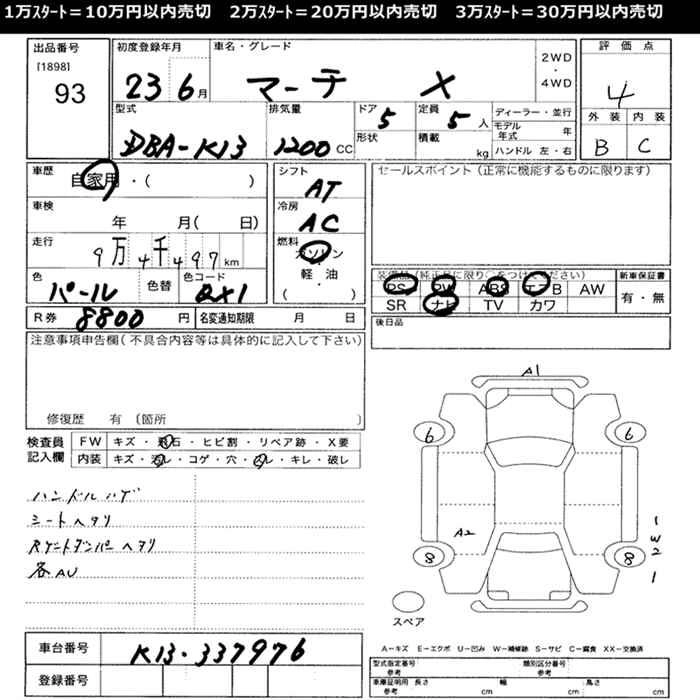 1万ｽﾀｰﾄ＝10万円以内売切　2万ｽﾀｰﾄ＝20万円以内売切　3万ｽﾀｰﾄ＝30万円以内売切
出品番号 初度登録年月 車名・グレード 2WD・4WD 評価点
[1898]
93 23 6月 マーチ X 4
型式 排気量 ドア 定員 ディーラー・並行 外装 内装
DBA-K13 1200cc 5 5人 モデル年式 年 B C
形状 積載 kg ハンドル 左・右
車歴 自家用・( ) シフト AT セールスポイント (正常に機能するものに限ります)
車検 年 月( 日) 冷房 AC
走行 9万4千497km 燃料 ガソリン
軽・油
( )
色 パール 色替 色コード QX1
装備品(純正品に限り○をつけてください) 新車保証書
PS PW ABS エアB AW 有・無
SR ナビ TV カワ
R券 8800円 名変通知期限 月 日 後日品
注意事項申告欄(不具合内容等は具体的に記入して下さい)
修復歴 有 〔箇所 〕
検査員記入欄 FW キズ・飛石・ヒビ割・リペア跡・X要
内装 キズ・汚レ・コゲ・穴・スレ・キレ・破レ
A1
6 6
ハンドルハゲ
シートヘタリ
Rゲートダンパーヘタリ
各AU
A2
1
W2
1
8 8
スペア
車台番号 K13-337976
登録番号
A－キズ E－エクボ U－凹み W－補修跡 S－サビ C－腐食 XX－交換済
型式指定番号 参考 類別区分番号 参考
車庫証明用 参考 長さ cm 幅 cm 高さ cm